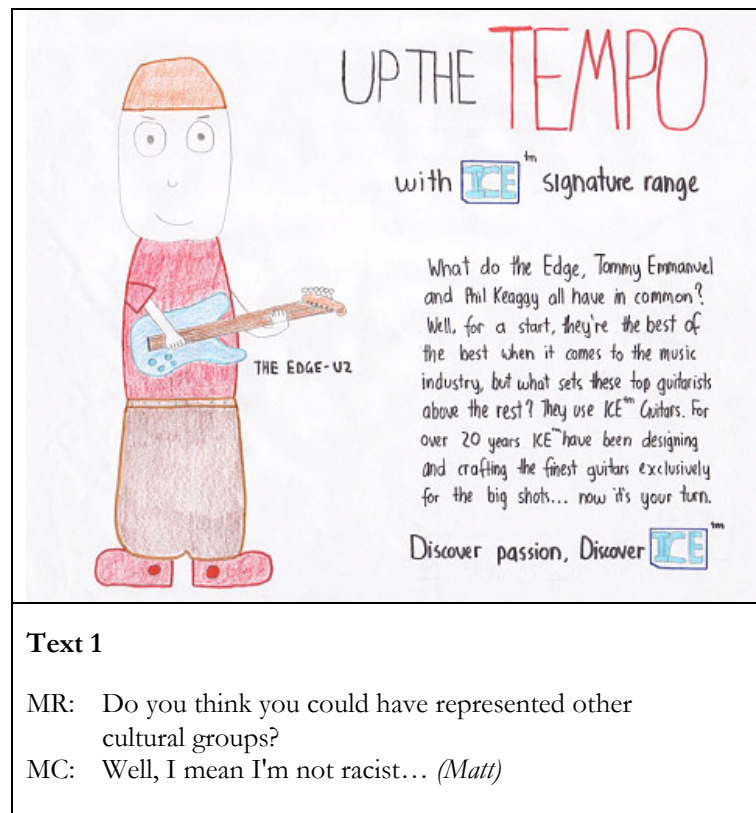 UP THE TEMPO
with ICE™ signature range
What do the Edge, Tommy Emmanuel
and Phil Keaggy all have in common?
Well, for a start, they're the best of
the best when it comes to the music
industry, but what sets these top guitarists
above the rest? They use ICE™ Guitars. For
over 20 years ICE™ have been designing
and crafting the finest guitars exclusively
for the big shots... now it's your turn.
THE EDGE-U2
Discover passion, Discover ICE™
Text 1
MR: Do you think you could have represented other
cultural groups?
MC: Well, I mean I'm not racist… (Matt)